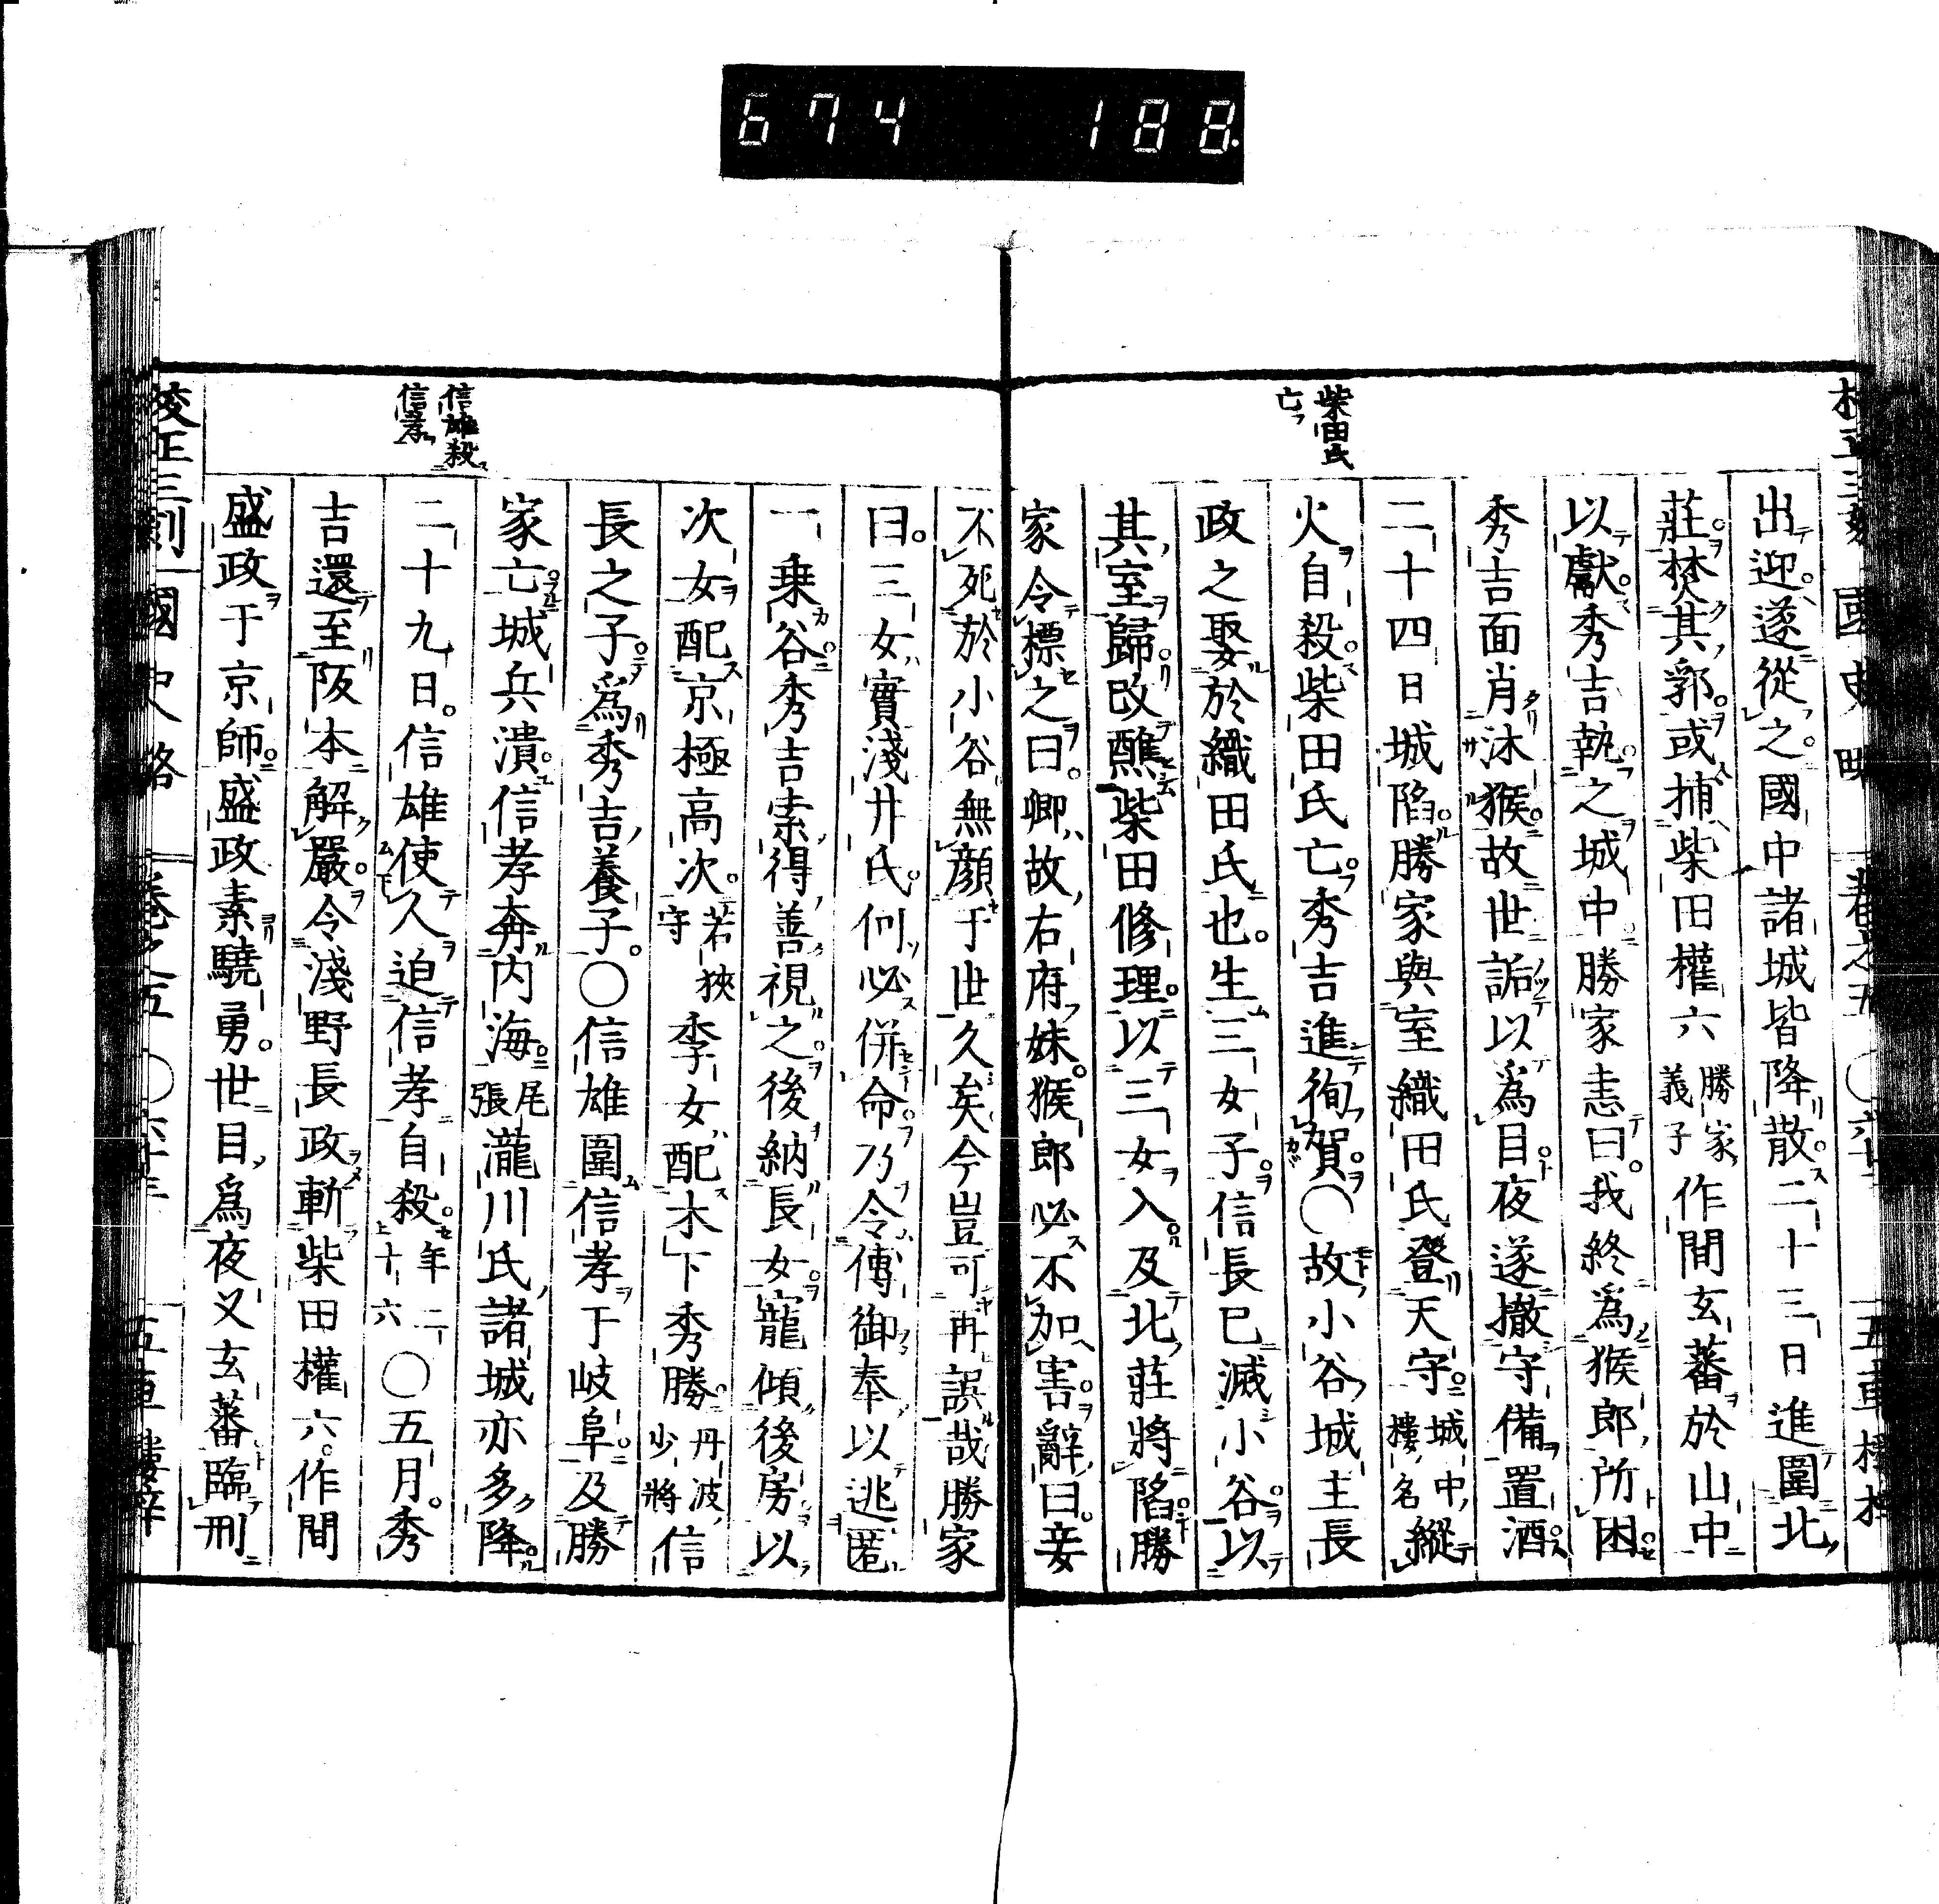 674 188
柴田氏
亡
出迎。遂從之。國中諸城皆降散。二十三日進圍北
莊。焚其郭。或捕柴田權六勝家義子作間玄蕃於山中
以獻。秀吉執之城中。勝家恚曰。我終爲猴郎所困。
秀吉面肖沐猴。故世詬以爲目。夜遂撤守備置酒。
二十四日城陷。勝家與室織田氏登天守。城中樓名縱
火自殺。柴田氏亡。秀吉進徇賀。〇故小谷城主長
政之娶於織田氏也。生三女子。信長已滅小谷。以
其室歸。改醮柴田修理。以三女入。及北莊將陷。勝
家令標之曰。卿故右府妹。猴郎必不加害。辭曰。妾
不死於小谷。無顏于世久矣。今豈可再誤哉。勝家
曰。三女實淺井氏。何必併命。乃令傅御奉以逃匿
一乘谷。秀吉索得善視之。後納長女。寵傾後房。以
次女配京極高次。若狹守季女配木下秀勝。丹波少將信
長之子。爲秀吉養子。〇信雄圍信孝于岐阜。及勝
家亡。城兵潰。信孝奔内海。尾張瀧川氏諸城亦多降。
二十九日。信雄使人迫信孝自殺。年二十六〇五月。秀
吉還至阪本解嚴。令淺野長政斬柴田權六。作間
盛政于京師。盛政素驍勇。世目爲夜叉玄蕃。臨刑
信雄殺
信孝
校正三刻國史略 卷之五 〇六十三 五車樓梓